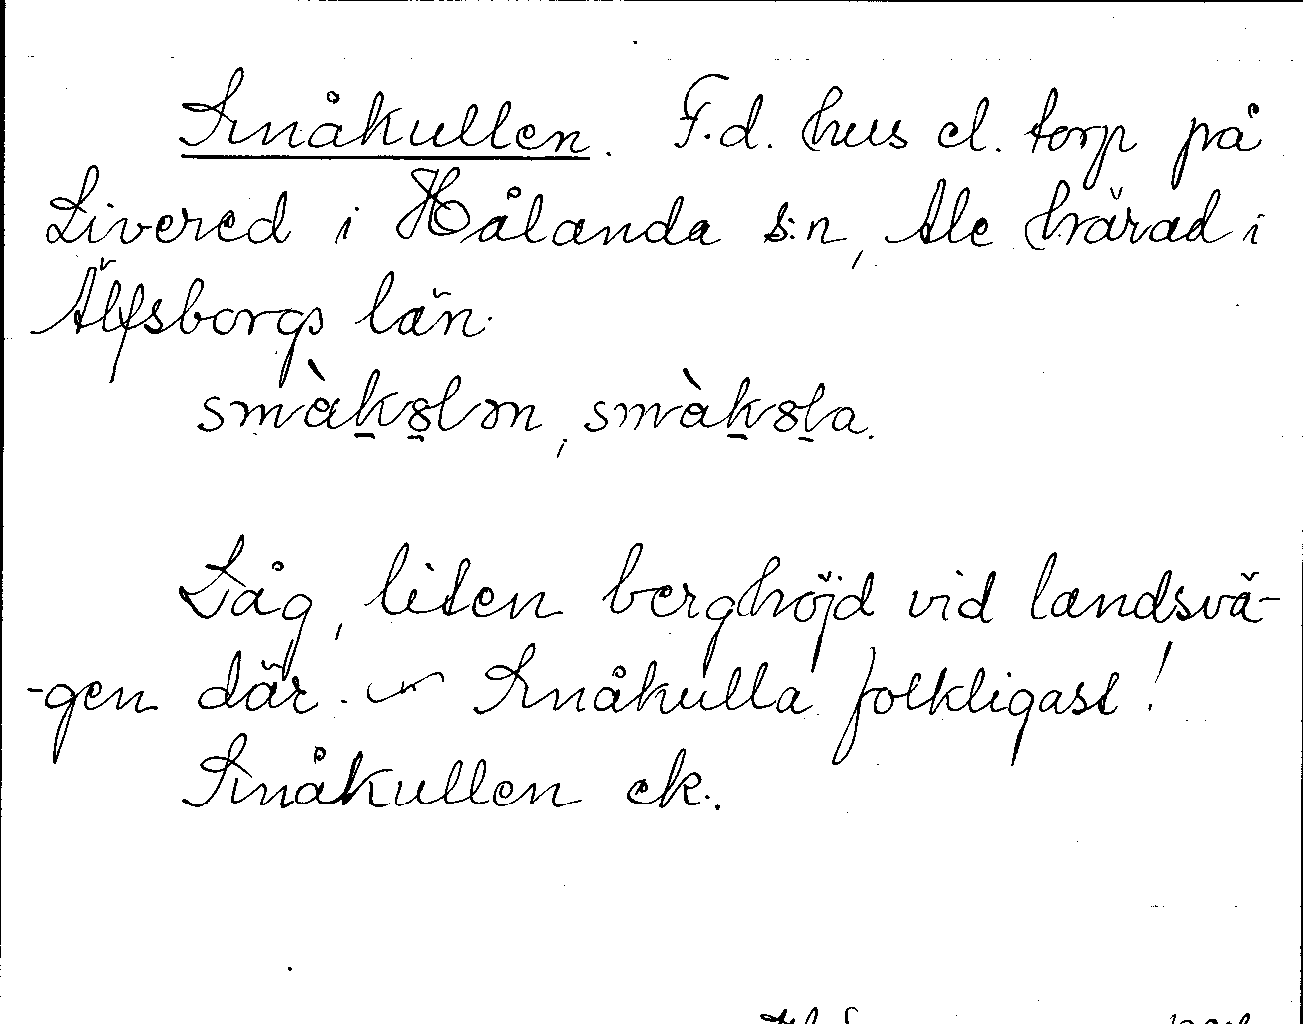 Småkullen. F.d. hus el. torp på
Livered i Hålanda s:n, Ale härad i
Älfsborgs län.
smàkọlən, smàkọla.
Låg, liten berghöjd vid landsvä-
-gen där. ~ Småkulla folkligast!
Småkullen ek.